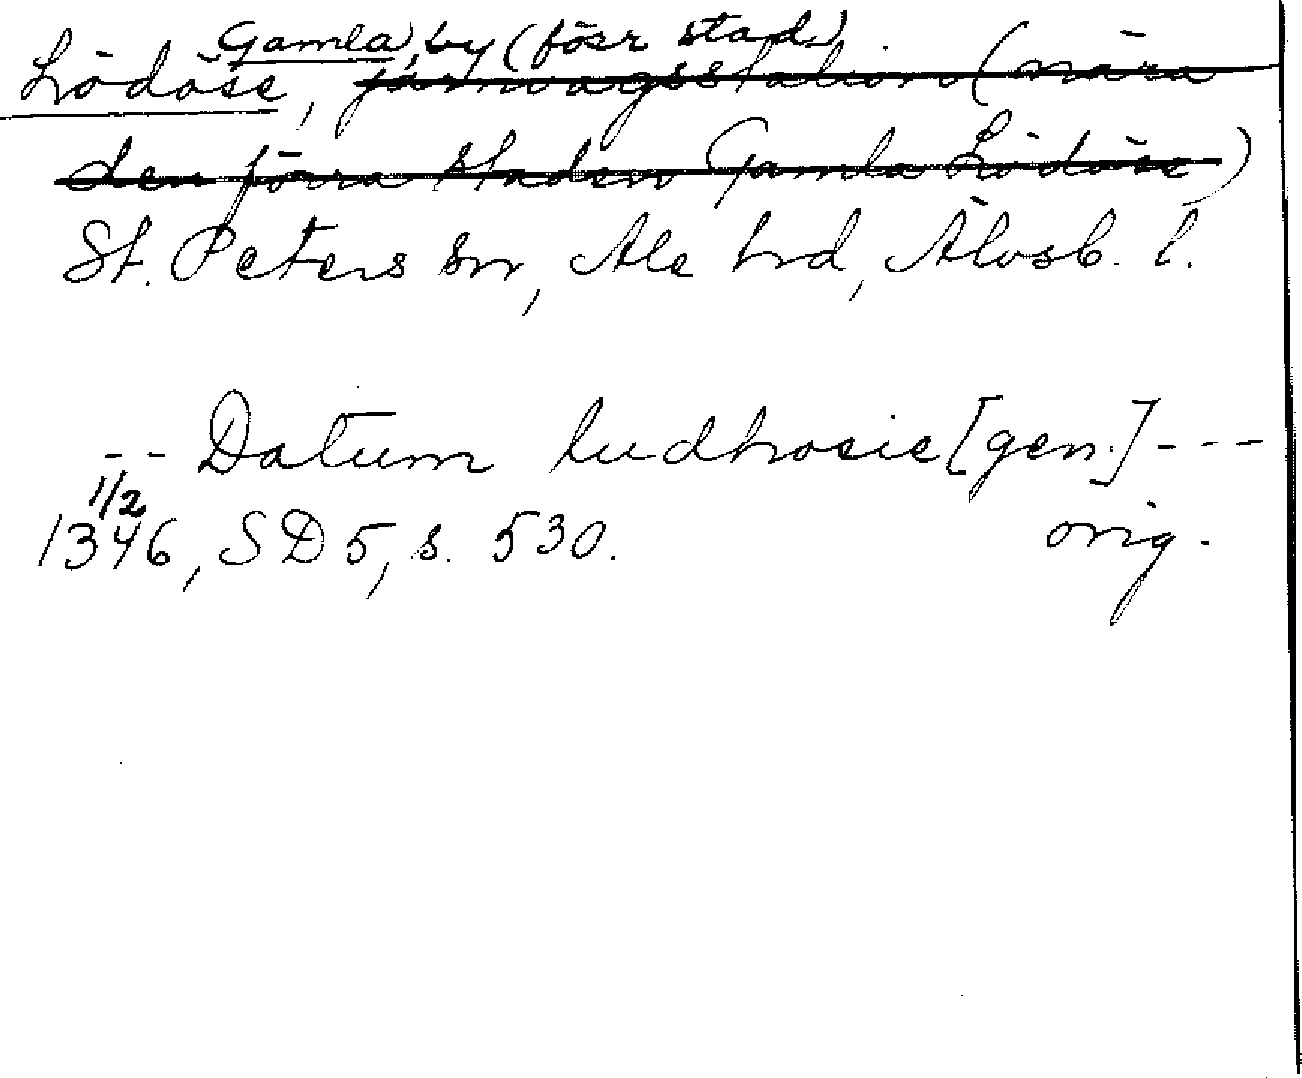 Gamla, by (förr stad).
Lödöse, järnvägsstation (nära
den förra staden Gamla Lödöse)
St. Peters sn, Ale hd, Älvsb. l.
-- Datum ludhosie [gen.] ---
1/2
1346, SD 5, s. 530. orig.